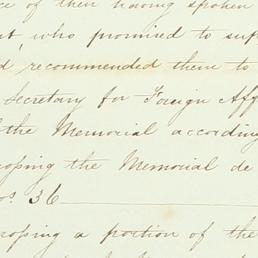 ce of their having spoken
t, who promised to sup
d recommended them to
Secretary for Foreign Aff
f the Memorial according
rossing the Memorial de
o. 36
rossing a portion of the